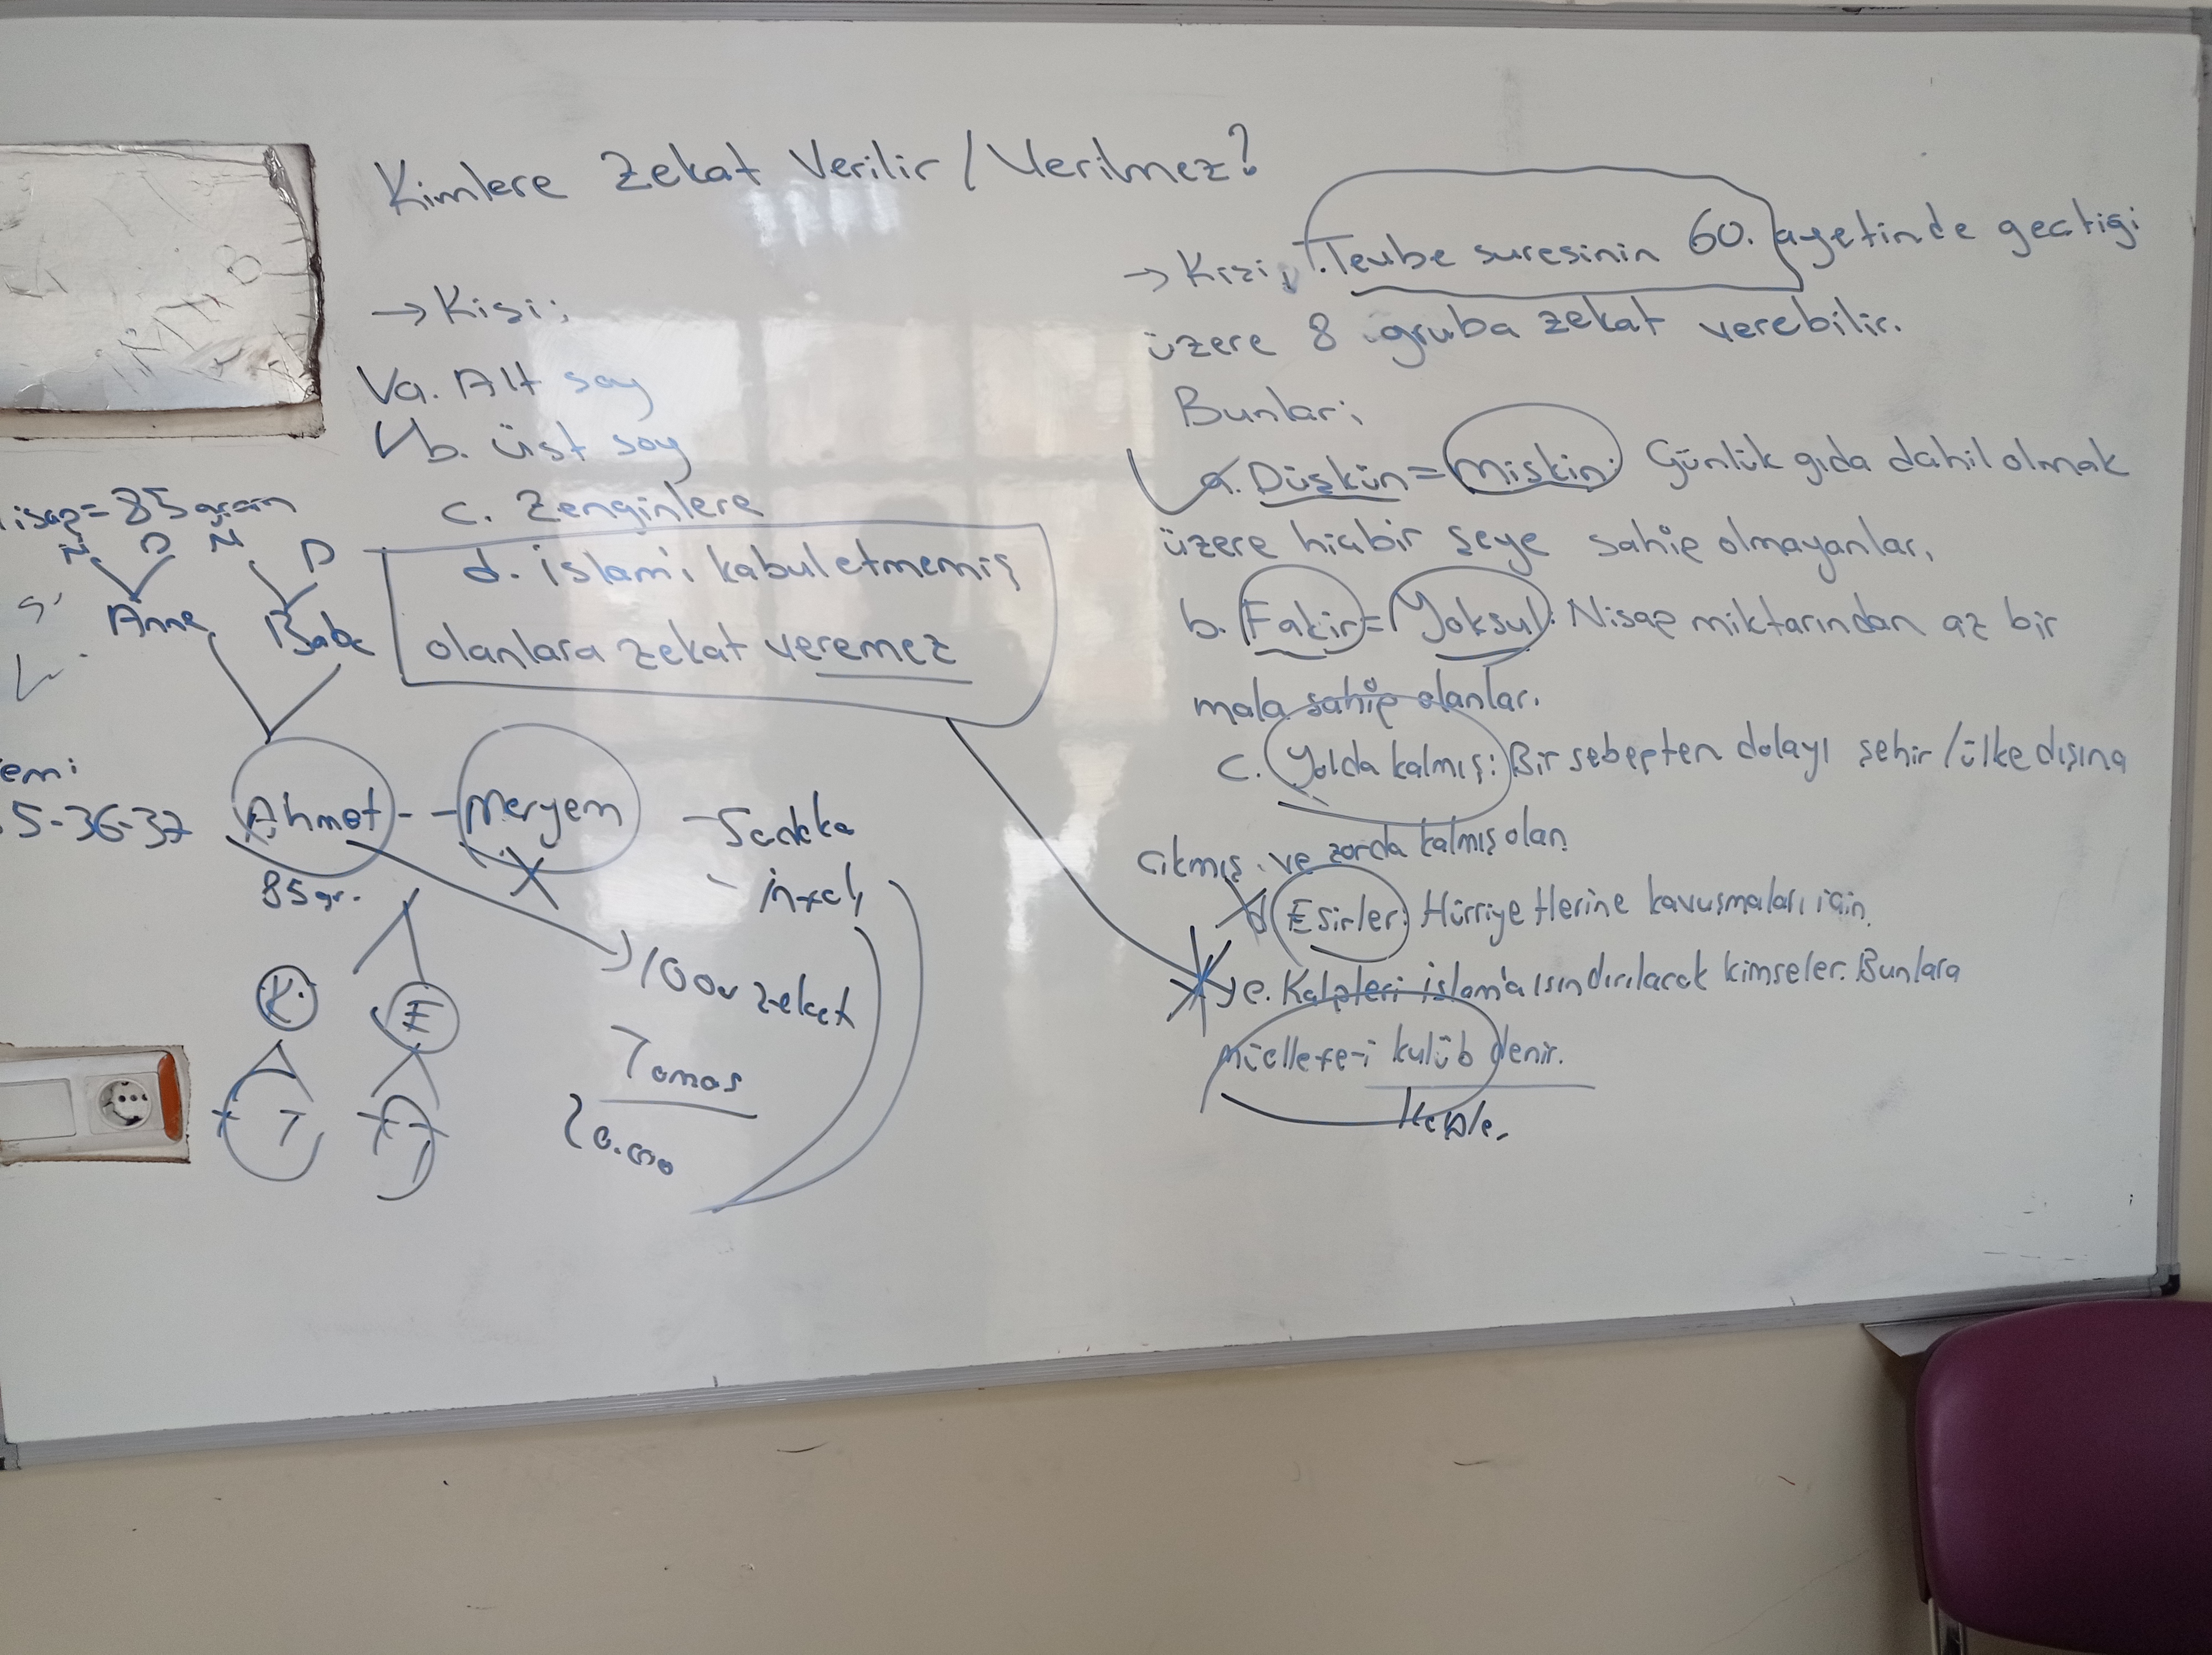 Kimlere Zekat Verilir / Verilmez?
→ Kişi;
a. Alt soy
b. üst soy
c. Zenginlere
d. İslam'ı kabul etmemiş
olanlara zekat veremez
=85 gram
N D N D
Anne Baba
5-36-37
Ahmet -- Meryem
85gr.
K E
- Sadaka
- İnfak
zekat
Tomas
20.000
→ Kişi, Tevbe suresinin 60. ayetinde geçtiği
üzere 8 gruba zekat verebilir.
Bunlar;
a. Düşkün = Miskin: Günlük gıda dahil olmak
üzere hiçbir şeye sahip olmayanlar.
b. Fakir = Yoksul: Nisap miktarından az bir
mala sahip olanlar.
c. Yolda kalmış: Bir sebepten dolayı şehir / ülke dışına
çıkmış ve zorda kalmış olan
d Esirler: Hürriyetlerine kavuşmaları için
e. Kalpleri İslam'a ısındırılacak kimseler. Bunlara
müellefe-i kulüb denir.